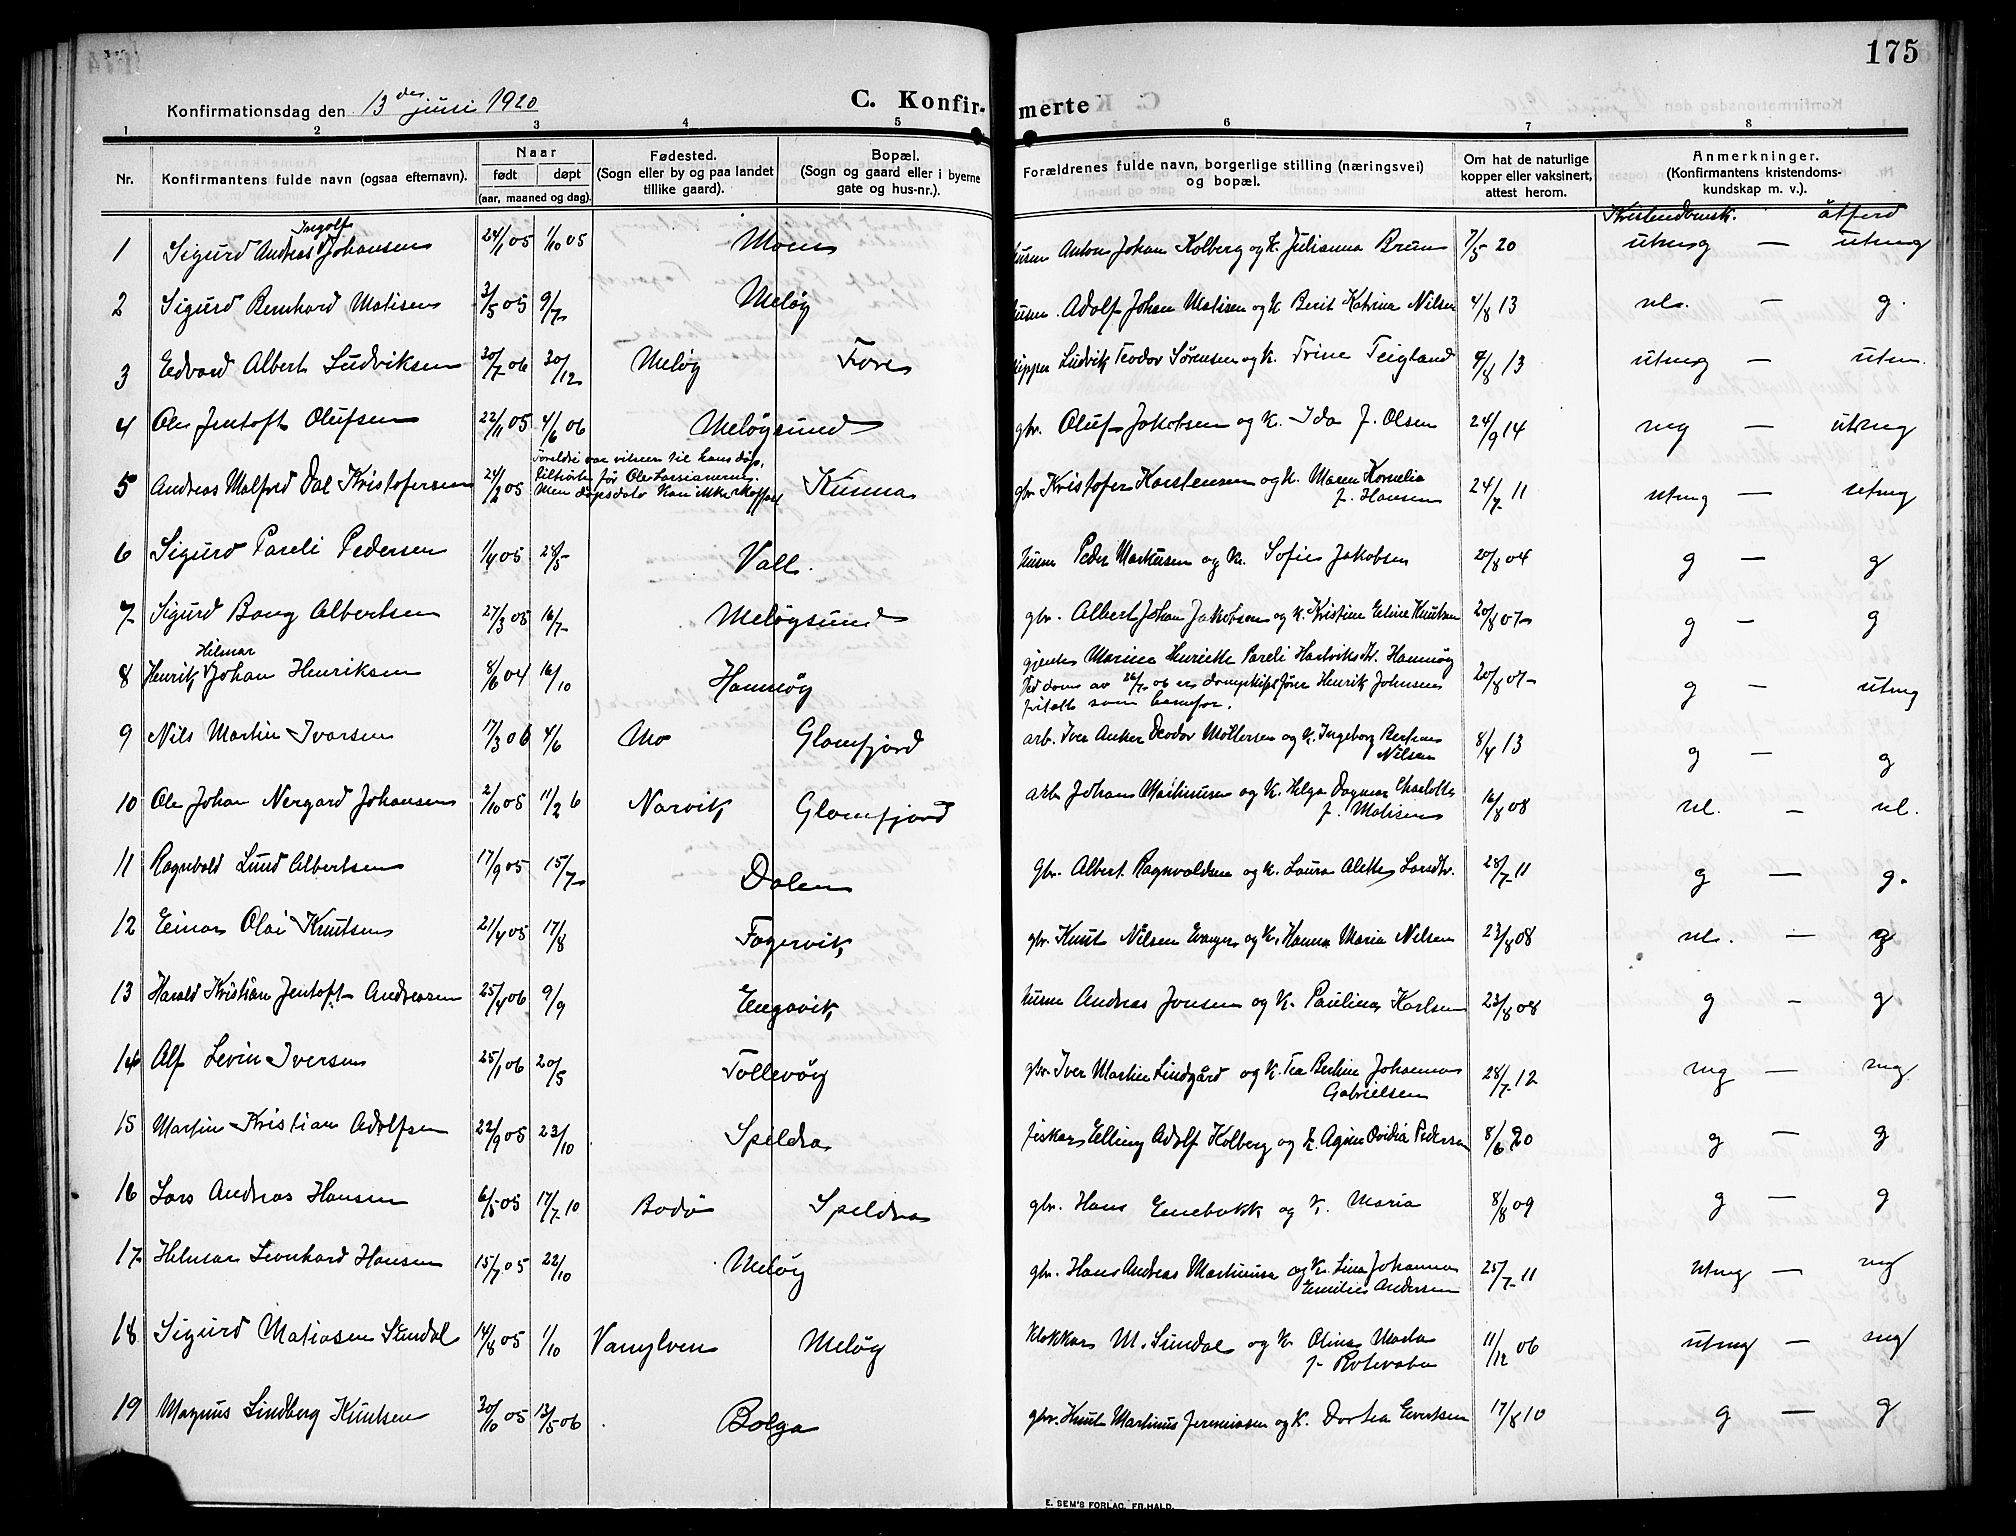 175
Konfirmationsdag den 13des juni 1920
C. Konfirmerte
1 2 3 4 5 6 7 8
Nr.
Konfirmantens fulde navn (ogsaa efternavn).
Naar
født døpt
(aar, maaned og dag).
Fødested.
(Sogn eller by og paa landet
tillike gaard).
Bopæl.
(Sogn og gaard eller i byerne
gate og hus-nr.).
Forældrenes fulde navn, borgerlige stilling (næringsvei)
og bopæl.
Om hat de naturlige
kopper eller vaksinert,
attest herom.
Anmerkninger.
(Konfirmantens kristendoms-
kundskap m. v.).
Kristendomsk. åtferd
Ingolf
1 Sigurd Andreas Johansen 24/1 05 1/10 05 husm Anton Johan Kolberg og k. Julianna Brun 7/5 20 utmg — utmg
2 Sigurd Bernhard Matisen 3/5 05 9/7 Meløy husm. Adolf Johan Matisen og k Berit Katrine Nilsen 4/8 13 — g.
3 Edvard Albert Ludviksen 30/7 06 30/12 Meløy Fore skipper Ludvik Teodor Sørensen og k. Trine Teigland 4/8 13 utmg — utm.
4 Ole Jentoft Olufsen 22/11 05 4/6 06 Meløysund gbr. Oluf Jakobsen og k. Ida f. Olsen 24/9 14 mg utmg
Foreldre var vitner til hans døp,
5 Andreas Malfred Dal Kristofersen 24/2 05 Kunna gbr Kristofer Karstensen og k. Maren Kornelia 24/7 11 utmg — utmg
Men døpsdato kan ikke skaffes
f. Hansen
6 Sigurd Pareli Pedersen 1/4 05 28/5 Vall. husm Peder Markusen og k. Sofie Jakobsen 20/8 04 g — g
7 Sigurd Bang Albertsen 27/3 05 16/7 Meløysund gbr. Albert Johan Jakobsen og k. Kristine Eline Knutsen 20/8 07 g — g
Hilmar
8 Henrik Johan Henriksen 8/6 04 16/10 Hamnøy gjente Marine Henriette Pareli Hartviksdt. Hamnøy 20/8 07 g — utmg
Ved dom av 26/7 06 er dampskipsfører Henrik Johnsen
fritatt som barnefar.
9 Nils Martin Ivarsen 17/3 06 4/6 Mo Glomfjord arb. Iver Anker Teodor Møllersen og k. Ingeborg 8/4 13 g — g
Nilsen
10 Ole Johan Nergard Johansen 2/10 05 11/2 6 Narvik Glomfjord arb Johan Martinusen og k. Helga Dagmar Charlotte 16/8 08 — 
f. Matisen
11 Ragnvald Lund Albertsen 17/9 05 15/7 Dalen gbr. Albert Ragnvaldsen og k. Laura Alette Larsdtr. 28/7 11 g — g.
12 Einar Olai Knutsen 21/4 05 17/8 Fagervik gbr. Knut Nilsen og k. Hanna Maria Nilsen 23/8 08 — g
13 Harald Kristian Jentoft Andreasen 25/4 06 9/9 Engavik husm Andreas Jonsen og k. Pauline Karlsen 23/8 08 g — g
14 Alf Levin Iversen 25/1 06 20/5 Tollevøy gbr Iver Martin Lindgård og k. Tea Bertine Johanna 28/7 12 mg — mg
Gabrielsen
15 Martin Kristian Adolfsen 22/9 05 23/10 Speldra fiskar Elling Adolf Kolberg og k. Agine Ovidia Pedersen 8/6 20 g — g
16 Lars Andreas Hansen 6/5 05 17/7 10 Bodø Speldra gbr. Hans Enebakk og k. Maria 8/8 09 g — g
17 Helmer Leonhard Hansen 15/7 05 22/10 Meløy gbr. Hans Andreas Martinusen og k. Lina Johanna 25/7 11 utmg — mg
Emilie Andersen
18 Sigurd Matiasen Sundal 14/8 05 1/10 Vanylven Meløy klokkar M. Sundal og k Olina Marta 11/12 06 utmg — mg
f. Rotevatn
19 Magnus Lindberg Knutsen 30/10 05 13/5 06 Bolga gbr. Knut Martinus Jermiassen og k. Dortea Evertsen 17/8 10 g — g
E. SEM'S FORLAG, FR.HALD.